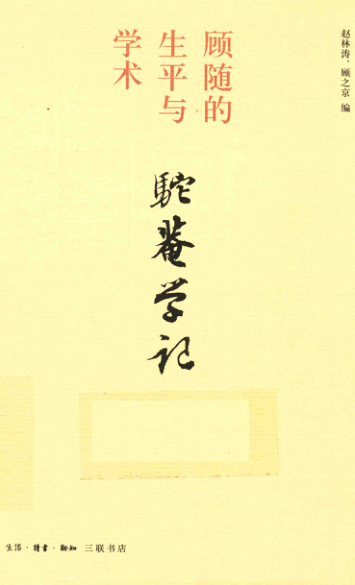 赵林涛、顾之京 编
顾随的
生平与
学术
駝菴学记
生活·读书·新知 三联书店